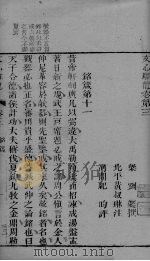 文心雕龍卷第三
梁 劉勰撰
北平黃叔琳注
河間紀昀評
銘箴第十一
昔帝軒刻輿几以弼違大禹勒筍簴而招諫成湯盤盂
著日新之規武王戶席題必戒之訓周公慎言於金人
仲尼革容於欹器則先聖鑒戒其來久矣故銘者名也
觀器必也正名審用貴乎盛德蓋臧武仲之論銘也曰
天子令德諸侯計功大夫稱伐夏鑄九牧之金鼎周勒